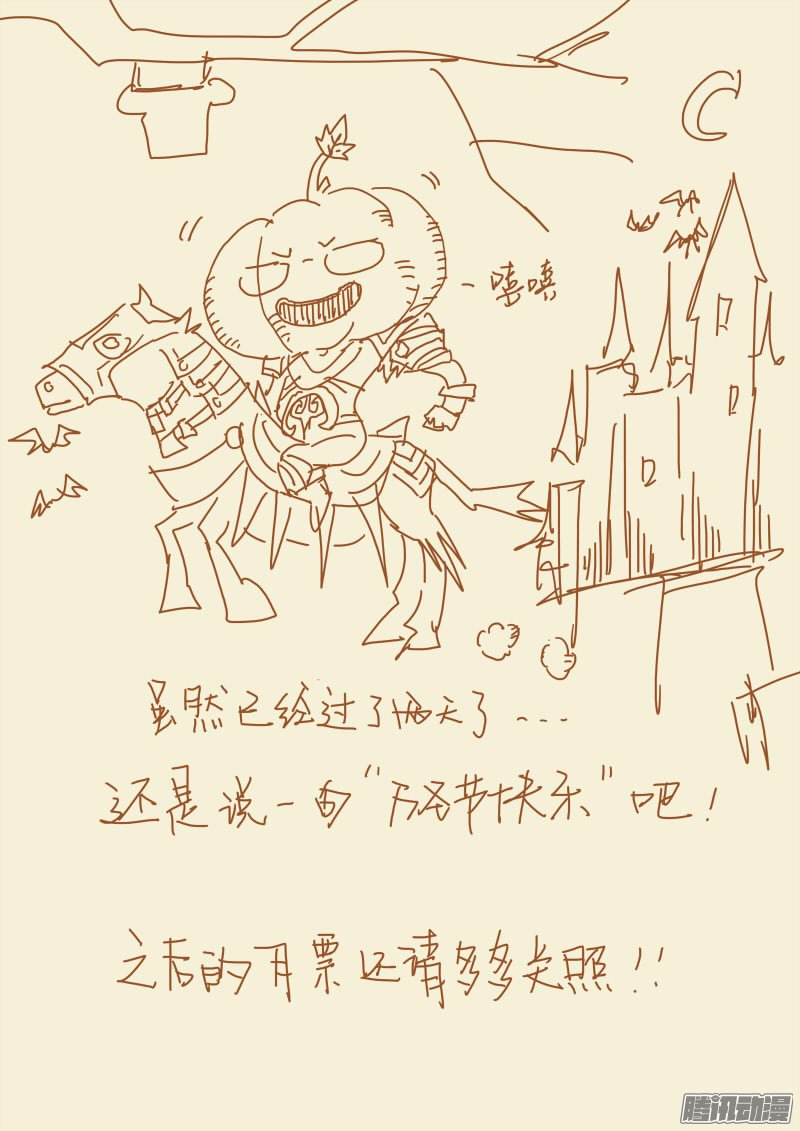 嘻嘻
虽然已经过了两天了....
还是说一句“万圣节快乐”吧!
之后的月票还请多多关照!!
腾讯动漫